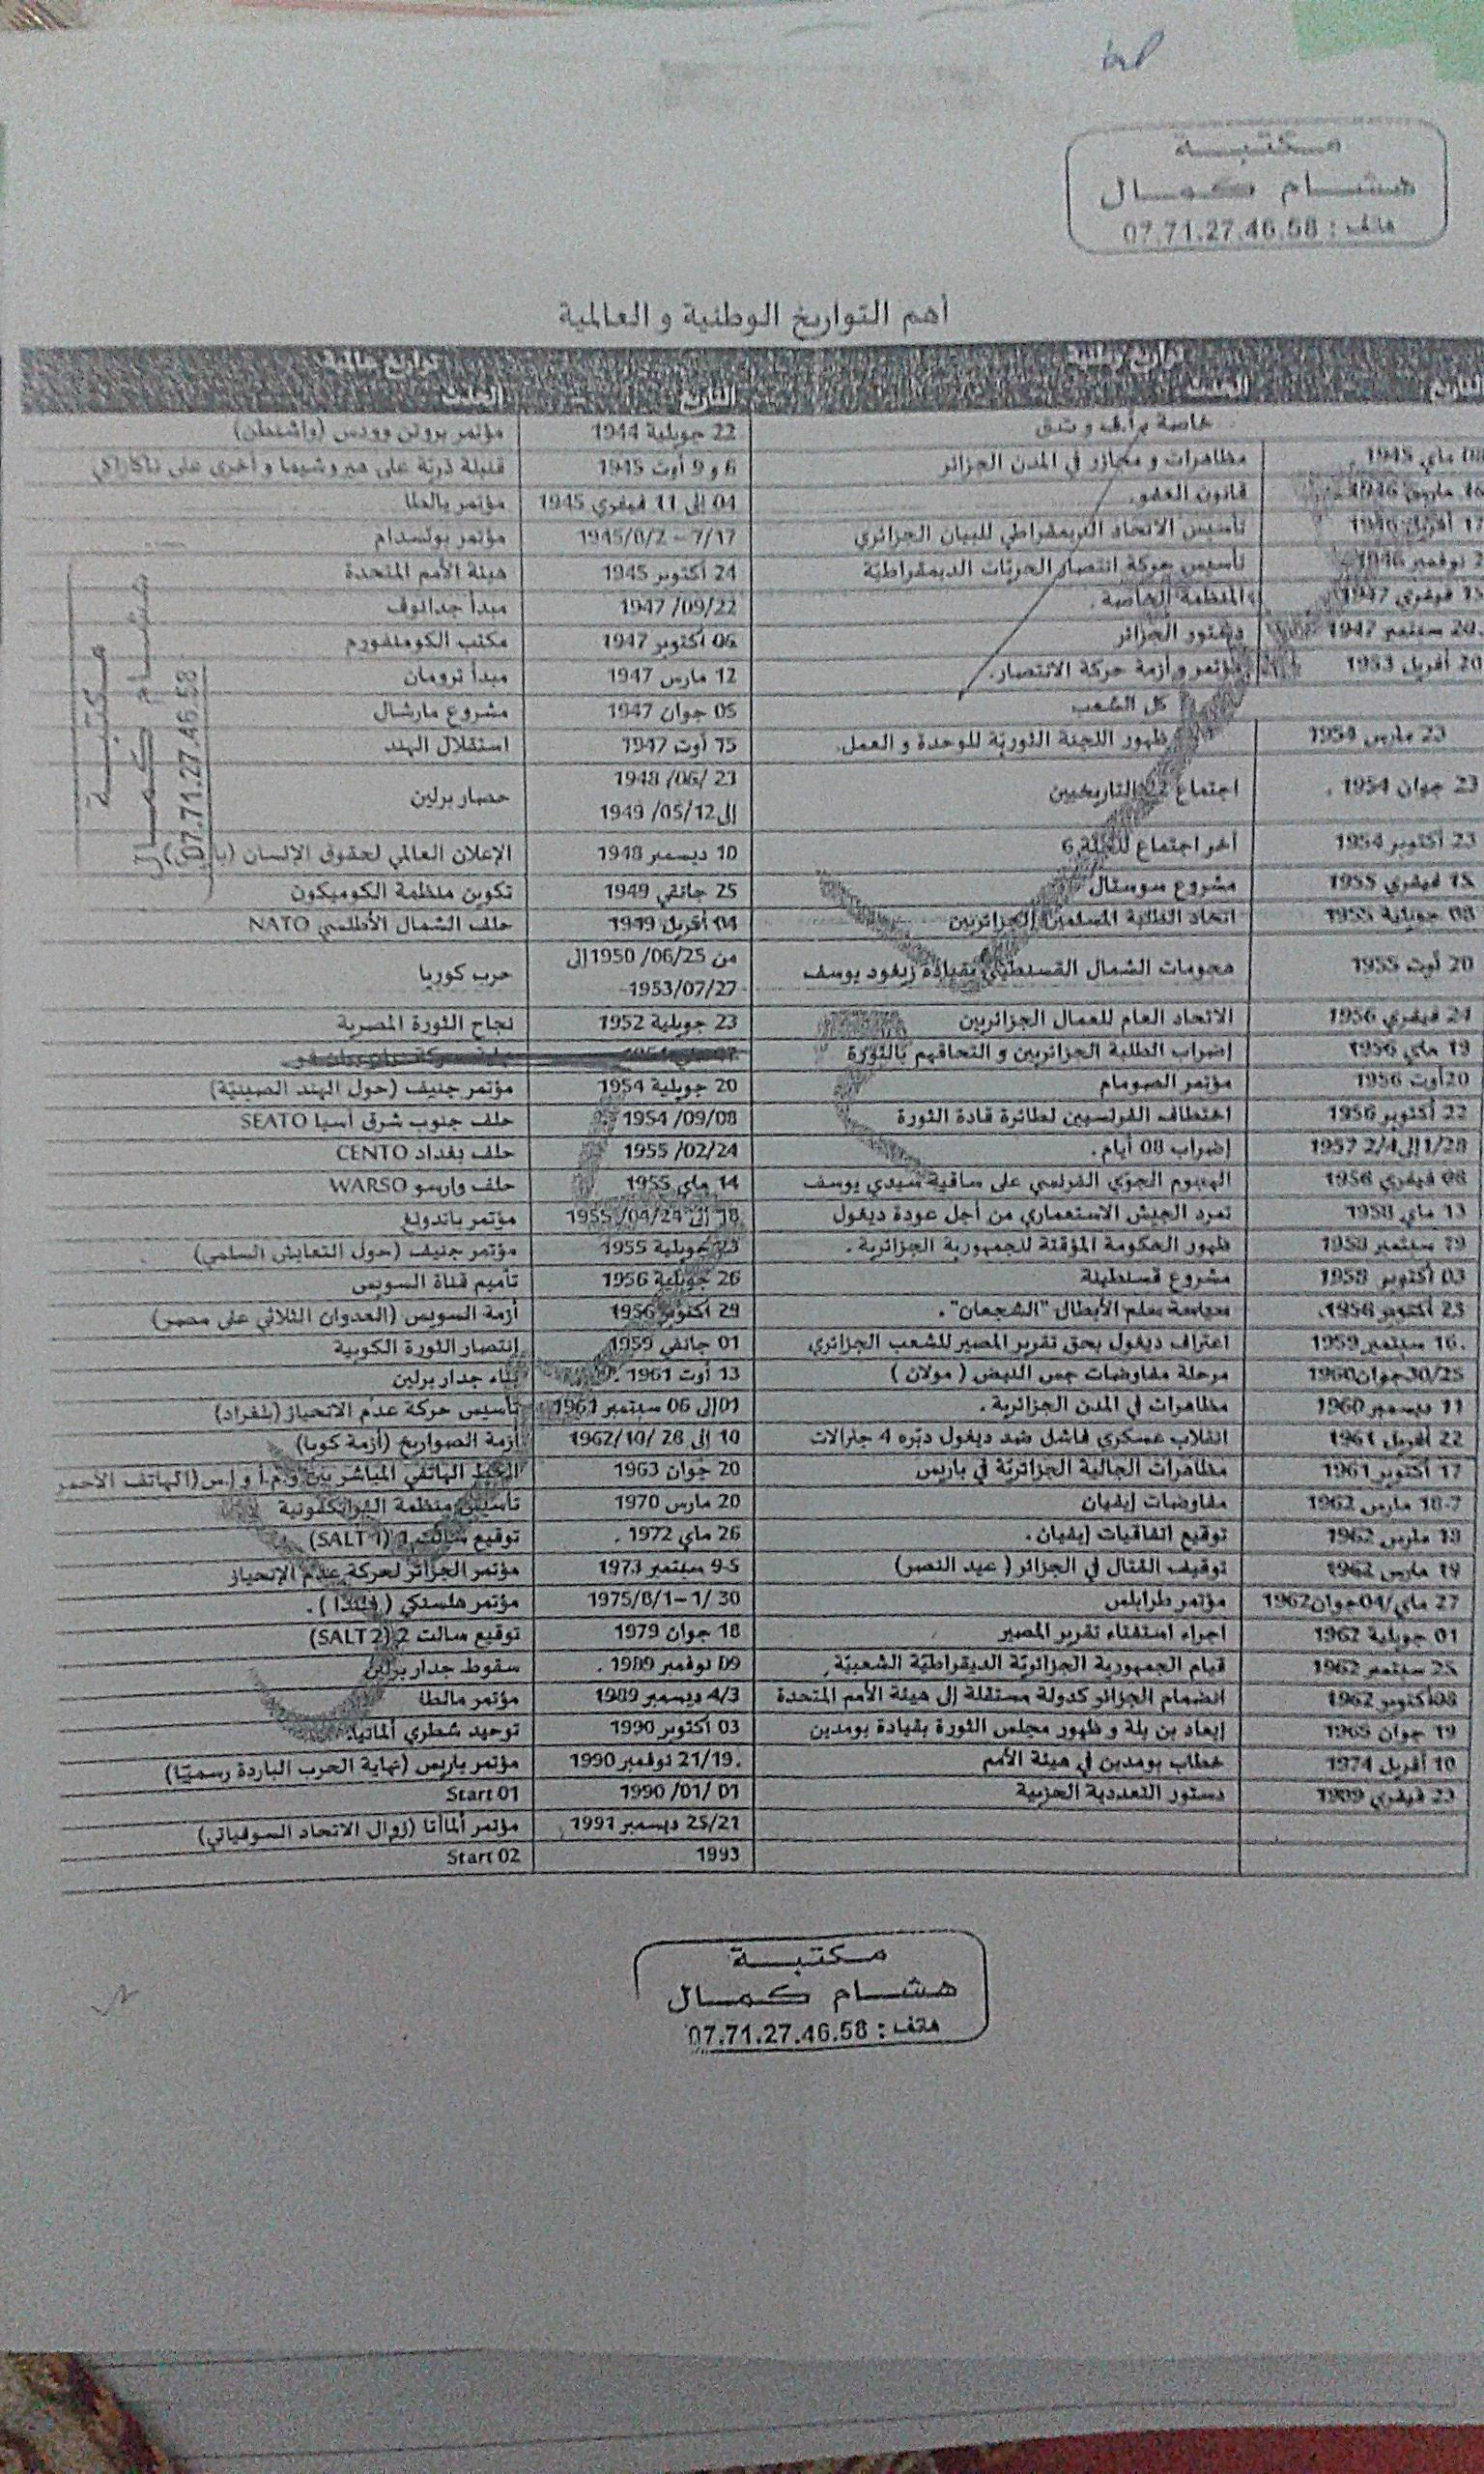 مكتبة
هشام كمال
هاتف : 07.71.27.46.58
أهم التواريخ الوطنية و العالمية
تواريخ وطنية تواريخ عالمية
التاريخ الحدث التاريخ الحدث
خاصة بـ أ.ف و ت.ق 22 جويلية 1944 مؤتمر بروتن وودس (واشنطن)
08 ماي 1945 مظاهرات و مجازر في المدن الجزائر 6 و 9 أوت 1945 قنبلة ذريّة على هيروشيما و أخرى على ناكازاكي
16 مارس 1946 قانون العفو. 04 إلى 11 فيفري 1945 مؤتمر يالطا
17 أفريل 1946 تأسيس الاتحاد الديمقراطي للبيان الجزائري 7/17 – 1945/8/2 مؤتمر بوتسدام
2 نوفمبر 1946 تأسيس حركة انتصار الحريّات الديمقراطيّة 24 أكتوبر 1945 هيئة الأمم المتحدة
15 فيفري 1947 المنظمة الخاصة. 1947 /09/22 مبدأ جدانوف
20 سبتمبر 1947 دستور الجزائر 06 أكتوبر 1947 مكتب الكومنفورم
20 أفريل 1953 مؤتمر و أزمة حركة الانتصار. 12 مارس 1947 مبدأ ترومان
كل الشعب 05 جوان 1947 مشروع مارشال
23 مارس 1954 ظهور اللجنة الثوريّة للوحدة و العمل. 15 أوت 1947 استقلال الهند
23 جوان 1954 . اجتماع 22 التاريخيين 1948 /06/ 23 إلى 1949 /05/12 حصار برلين
23 أكتوبر 1954 أخر اجتماع للجنة 6 10 ديسمبر 1948 الإعلان العالمي لحقوق الإنسان (باريس)
15 فيفري 1955 مشروع سوستال 25 جانفي 1949 تكوين منظمة الكوميكون
08 جويلية 1955 اتحاد الطلبة المسلمين الجزائريين 04 أفريل 1949 حلف الشمال الأطلسي NATO
20 أوت 1955 هجومات الشمال القسنطيني بقيادة زيغود يوسف من 1950 /06/25 إلى 1953/07/27 حرب كوريا
24 فيفري 1956 الاتحاد العام للعمال الجزائريين 23 جويلية 1952 نجاح الثورة المصرية
19 ماي 1956 إضراب الطلبة الجزائريين و التحاقهم بالثورة
20أوت 1956 مؤتمر الصومام 20 جويلية 1954 مؤتمر جنيف (حول الهند الصينيّة)
22 أكتوبر 1956 اختطاف الفرنسيين لطائرة قادة الثورة 1954 /09/08 حلف جنوب شرق أسيا SEATO
1/28إلى 2/4 1957 إضراب 08 أيام. 1955 /02/24 حلف بغداد CENTO
08 فيفري 1958 الهجوم الجوّي الفرنسي على ساقية سيدي يوسف 14 ماي 1955 حلف وارسو WARSO
13 ماي 1958 تمرد الجيش الاستعماري من أجل عودة ديغول 18 إلى 1955 /04/24 مؤتمر باندونغ
19 سبتمبر 1958 ظهور الحكومة المؤقتة للجمهورية الجزائرية. 23 جويلية 1955 مؤتمر جنيف (حول التعايش السلمي)
03 أكتوبر 1958 مشروع قسنطينة 26 جويلية 1956 تأميم قناة السويس
23 أكتوبر 1958. سياسة سلم الأبطال "الشجعان". 29 أكتوبر 1956 أزمة السويس (العدوان الثلاثي على مصر)
16 سبتمبر 1959. اعتراف ديغول بحق تقرير المصير للشعب الجزائري 01 جانفي 1959 إنتصار الثورة الكوبية
30/25جوان1960 مرحلة مفاوضات جس النبض ( مولان ) 13 أوت 1961 . بناء جدار برلين
11 ديسمبر 1960 مظاهرات في المدن الجزائرية. 01إلى 06 سبتمبر 1961 تأسيس حركة عدم الانحياز (بلغراد)
22 أفريل 1961 انقلاب عسكري فاشل ضد ديغول دبّره 4 جنرالات 10 إلى 28 /1962/10 أزمة الصواريخ (أزمة كوبا)
17 أكتوبر 1961 مظاهرات الجالية الجزائريّة في باريس 20 جوان 1963 الخط الهاتفي المباشر بين و.م.أ و إ.س(الهاتف الأحمر
18-7 مارس 1962 مفاوضات إيفيان 20 مارس 1970 تأسيس منظمة الفرانكفونية
18 مارس 1962 توقيع اتفاقيات إيفيان. 26 ماي 1972 . توقيع سالت 1 (SALT 1)
19 مارس 1962 توقيف القتال في الجزائر ( عيد النصر) 9-5 سبتمبر 1973 مؤتمر الجزائر لحركة عدم الإنحياز
27 ماي/04جوان1962 مؤتمر طرابلس 30 /1 –1975/8/1 مؤتمر هلسنكي ( فنلندا ) .
01 جويلية 1962 اجراء استفتاء تقرير المصير 18 جوان 1979 توقيع سالت 2 (SALT 2)
25 سبتمبر 1962 قيام الجمهورية الجزائريّة الديقراطيّة الشعبيّة. 09 نوفمبر 1989 . سقوط جدار برلين
08أكتوبر 1962 انضمام الجزائر كدولة مستقلة إلى هيئة الأمم المتحدة 4/3 ديسمبر 1989 مؤتمر مالطا
19 جوان 1965 إبعاد بن بلة و ظهور مجلس الثورة بقيادة بومدين 03 أكتوبر 1990 توحيد شطري ألمانيا.
10 أفريل 1974 خطاب بومدين في هيئة الأمم 21/19. نوفمبر 1990 مؤتمر باريس (نهاية الحرب الباردة رسميّا)
23 فيفري 1989 دستور التعددية الحزبية 1990 /01/ 01 Start 01
25/21 ديسمبر 1991 مؤتمر ألماأتا (زوال الاتحاد السوفياتي)
1993 Start 02
مكتبة
هشام كمال
07.71.27.46.58
مكتبة
هشام كمال
هاتف : 07.71.27.46.58